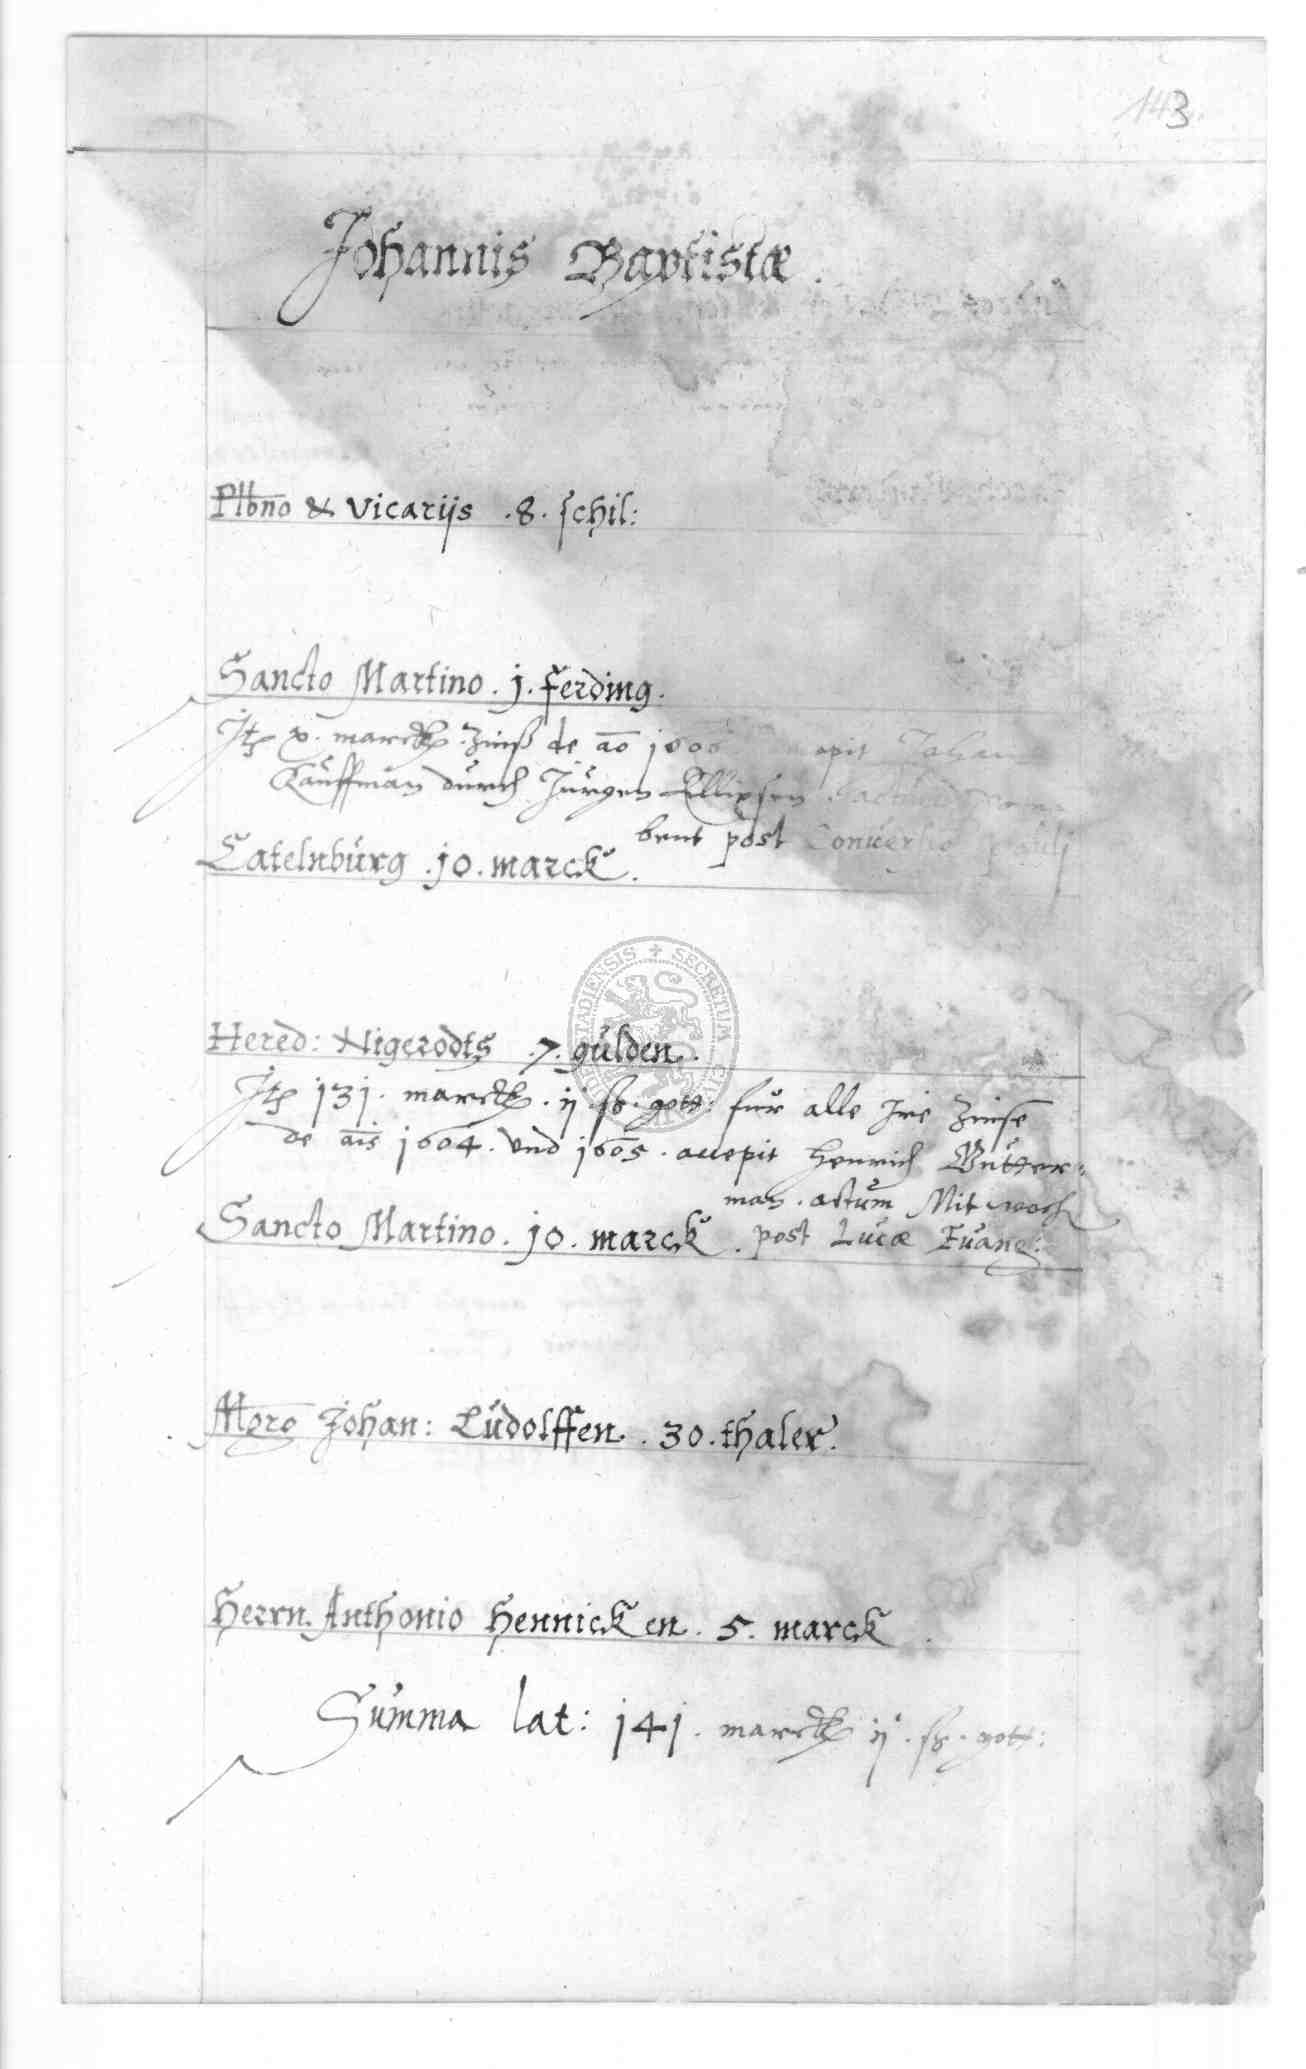 143
Johannis Baptistæ.
Plbno & vicarijs .8. schil:
Sancto Martino . j . ferding.
Jtẽ x. marck. Zinß de ao 1606 Johan
Kauffman durch Jürgen Ellipsen
bent post Conuersio Paulj
Catelnburg .10. marck.
Hered: Nigerodts .7. gulden.
Jtẽ 131. marck. ij. ß. gott: für alle Jre Zinse
de ais 1604. vnd 1605. accepit Henrich Butter-
man. actum Mitwoch
Sancto Martino. 10. marck. post Lucæ Euang:
Mgro Johan: Ludolffen. 30. thaler.
Herrn. Anthonio Hennicken. 5. marck
Summa lat: 141. marck ij. ß. gott:
SECRETUM